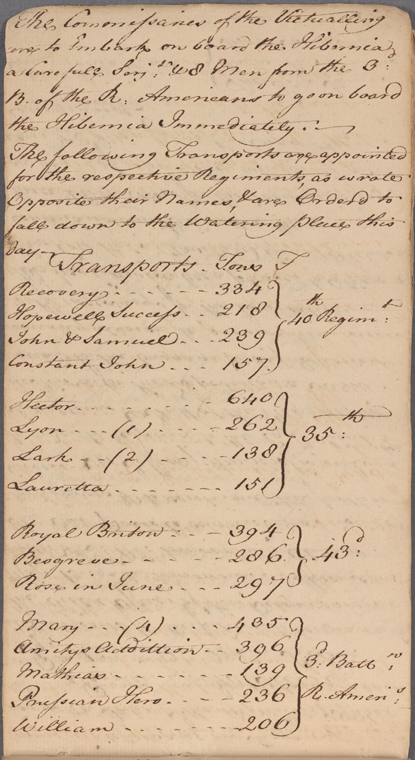 The Commissaries of the Victualling
are to Embark on board the Hibernia
a Carefull Serj:t & 8 Men from the 3:
B. of the R: Americans to go on board
the Hibernia Immediately:
The following Transports are appointed
for the respective Regiments, as wrote
Opposite their Names, & are Order'd to
fall down to the Watering place this
day
Transports. Tons T
Recovery 334
Hopewell Success 218
John & Samuel 239
Constant John 157
40th Regim:t
Hector 640
Lyon (1) 262
Lark (2) 138
Lauretta 151
35:th
Royal Briton 394
Beogreve 286
Rose in June 297
43:d
Mary (4) 435
Amitys Addittion 396
Mathias 139
Prussian Hero 236
William 206
3:d Batt:n
R. Ameri:s